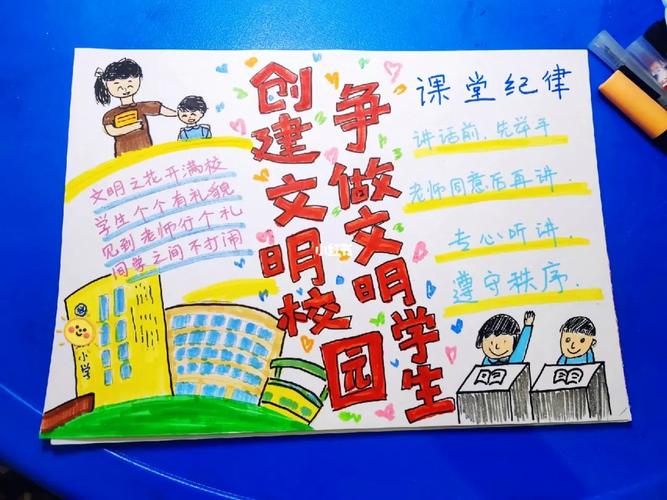 创建文明校园
争做文明学生
文明之花开满校
学生个个有礼貌
见到老师行个礼
同学之间不打闹
小学
课堂纪律
讲话前，先举手
老师同意后再讲．
专心听讲．
遵守秩序．
小红书